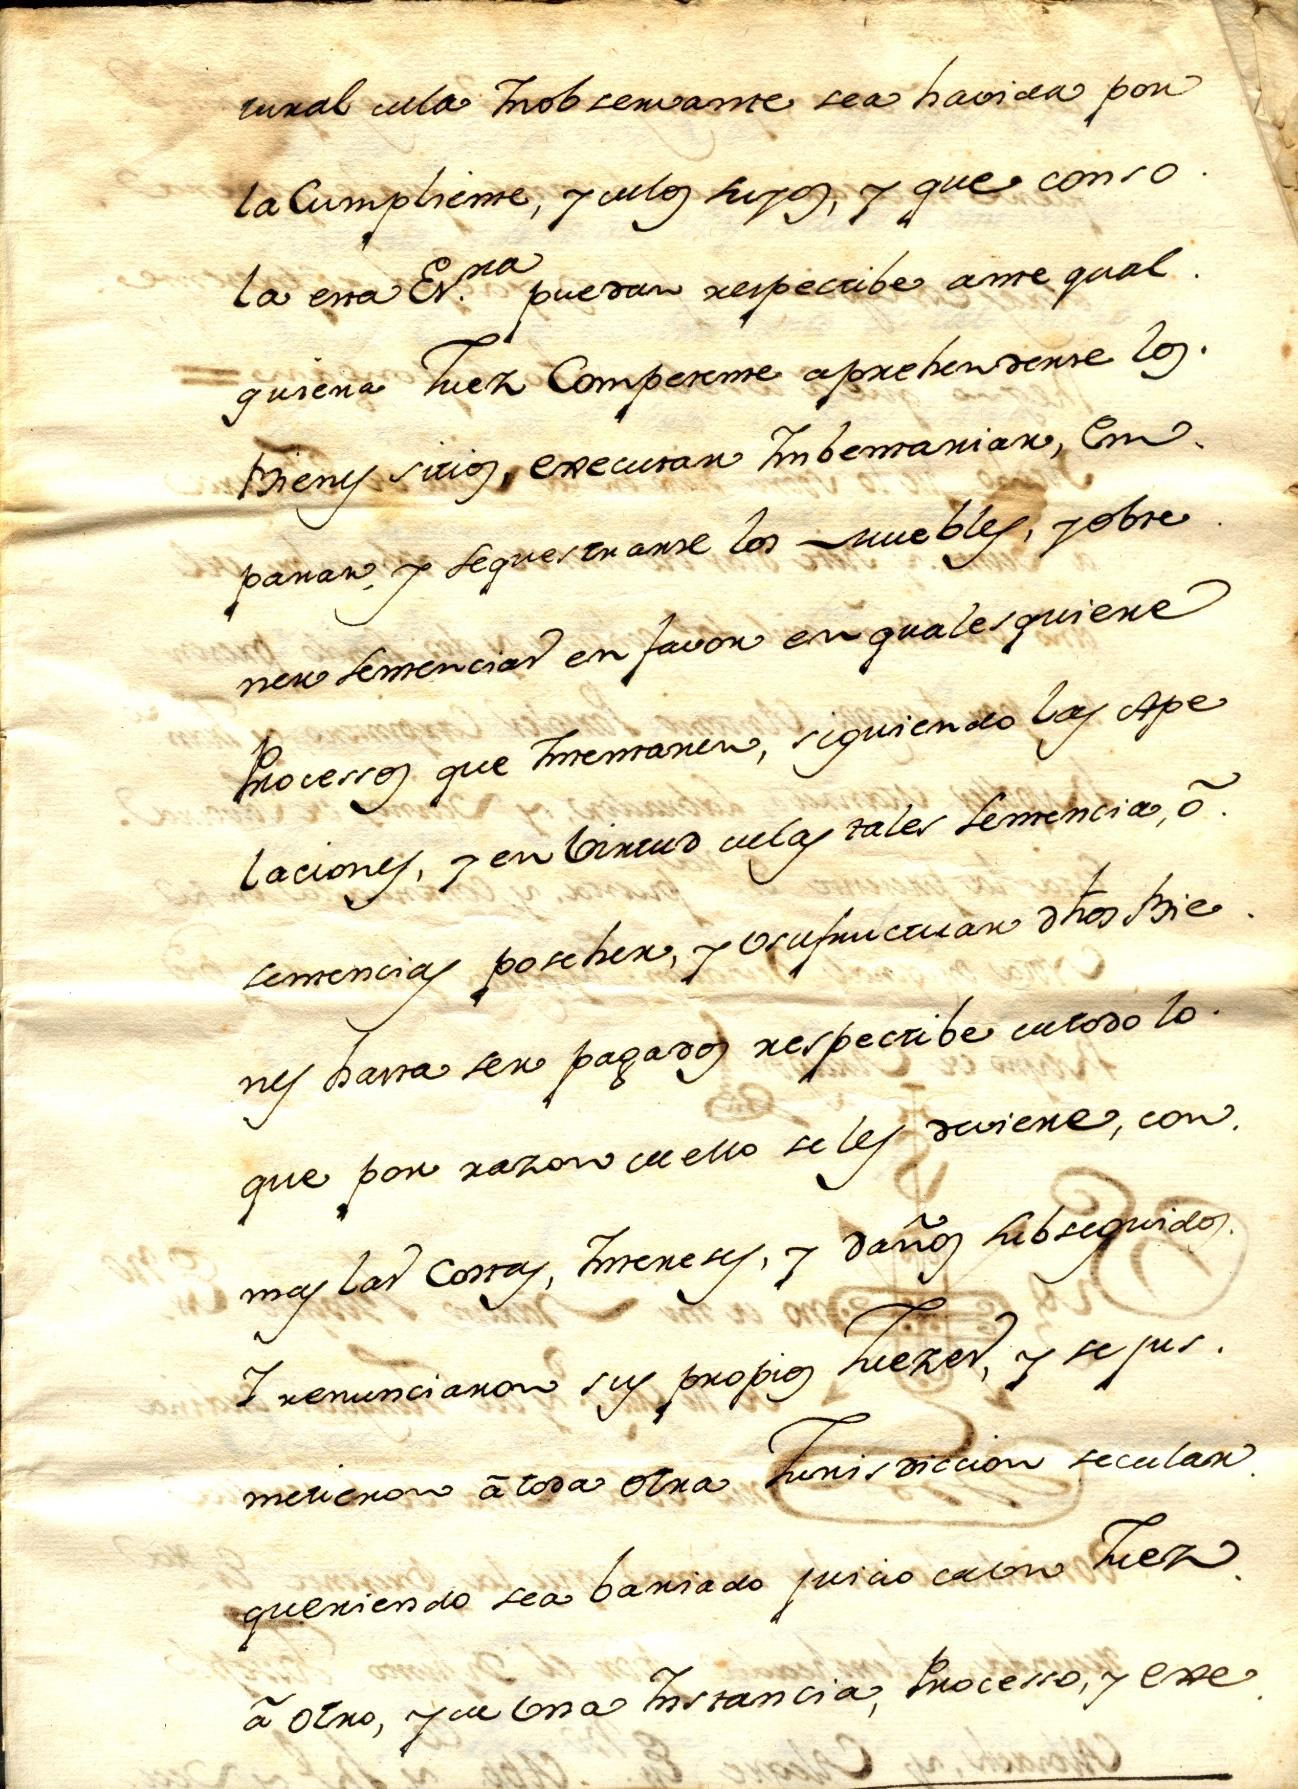 tural dela Inobservante sea havida por
la Cumpliente, y delos suyos, y que con so
la esta Es.ra puedan respectibe ante qual
quiera Juez Competente aprehenderse los
Bienes sitios, executar Inbentariar, Em
parar, y sequestrarse los muebles, y obte
ner sentencias en favor en qualesquiere
Processos que Intentaren, siguiendo las Ape
laciones, y en Virtud delas tales sentencia, ō
sentencias poseher, y Usufructuar dhos Bie
nes hasta ser pagados respectibe de todo lo
que por razon de ello se les deviere, con
mas las Costas, Intereses, y daños subseguidos.
Y renunciaron sus propios Juezes, y se jus
metieron ā toda otra Jurisdiccion secular
queriendo sea bariado juicio de Un Juez
ā otro, y de Una Instancia, Processo, y Exe